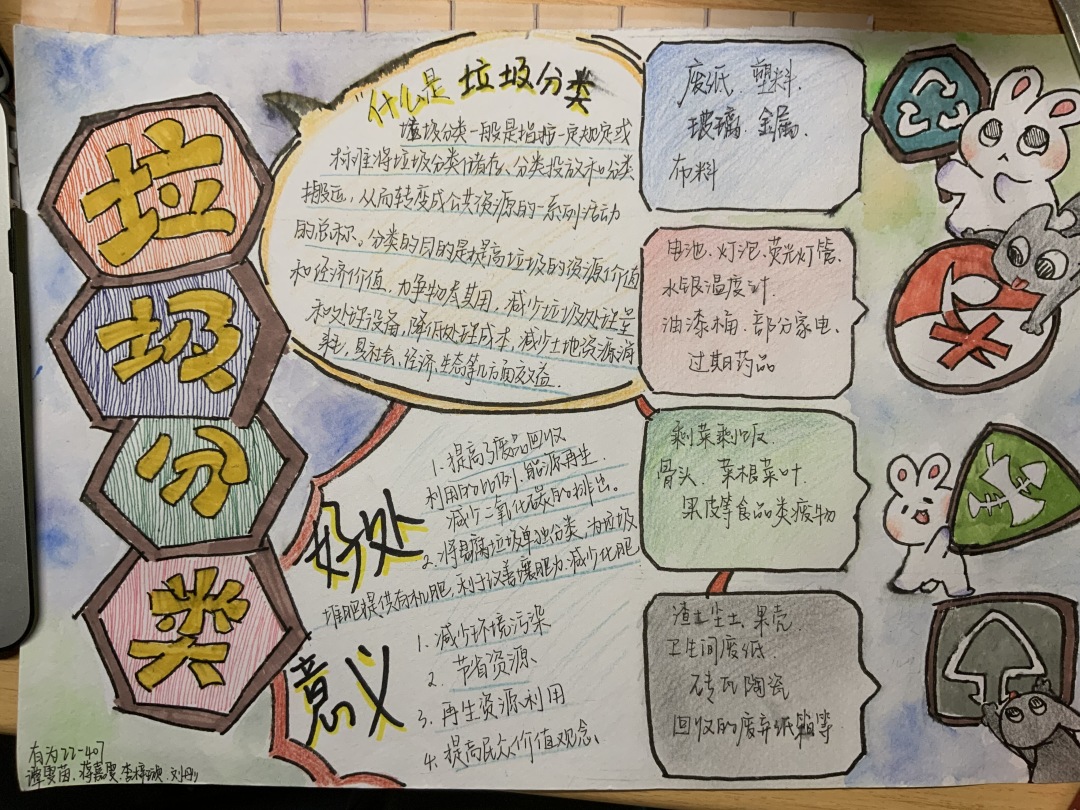 垃
圾
分
类
"什么是垃圾分类
垃圾分类一般是指按一定规定或
标准将垃圾分类储存、分类投放和分类
搬运，从而转变成公共资源的一系列活动
的总称。分类的目的是提高垃圾的资源价值
和经济价值，力争物尽其用，减少垃圾处理量
和处理设备，降低处理成本，减少土地资源消
耗，具社会、经济、生态等几方面效益.
好处
1. 提高了废品回收
利用的比例、能源再生.
减少二氧化碳的排出。
2. 将易腐垃圾单独分类，为垃圾
堆肥提供有机肥，利于改善壤肥力、减少化肥
意义
1. 减少环境污染
2. 节省资源、
3. 再生资源利用
4. 提高民众价值观念、
废纸、塑料.
玻璃、金属.
布料
电池、灯泡、荧光灯管、
水银温度计.
油漆桶、部分家电、
过期药品
剩菜剩饭.
骨头、菜根菜叶.
果皮等食品类废物
渣土尘土、果壳.
卫生间废纸.
砖瓦陶瓷
回收的废弃纸箱等
有为22-407